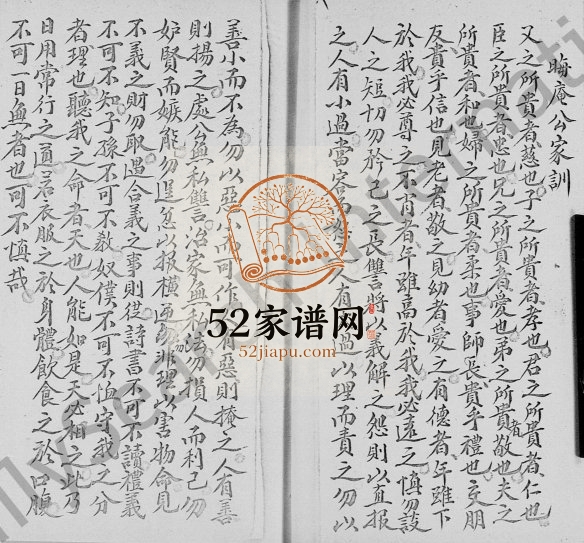 晦庵公家訓
父之所貴者慈也子之所貴者孝也君之所貴者仁也
臣之所貴者忠也兄之所貴者愛也弟之所貴者敬也夫之
所貴者和也婦之所貴者柔也事師長貴乎禮也交朋
友貴乎信也見老者敬之見幼者愛之有德者年雖下
於我我必尊之不肖者年雖高於我我必遠之慎勿談
人之短切勿矜己之長讐將以義解之怨則以直報
之人有小過當容而 人有 過以理而責之勿以
善小而不為勿以惡 而可作 有惡則掩之人有善
則揚之處公無私讐治家無私法勿損人而利己勿
妒賢而嫉能勿逞忿以報橫逆勿非理以害物命見
不義之財勿取遇合義之事則從詩書不可不讀禮義
不可不知子孫不可不教奴僕不可不恤守我之分
者理也聽我之命者天也人能如是天必相之此乃
日用常行之道若衣服之於身體飲食之於口腹
不可一日無者也可不慎哉
52家谱网
52jiapu.com